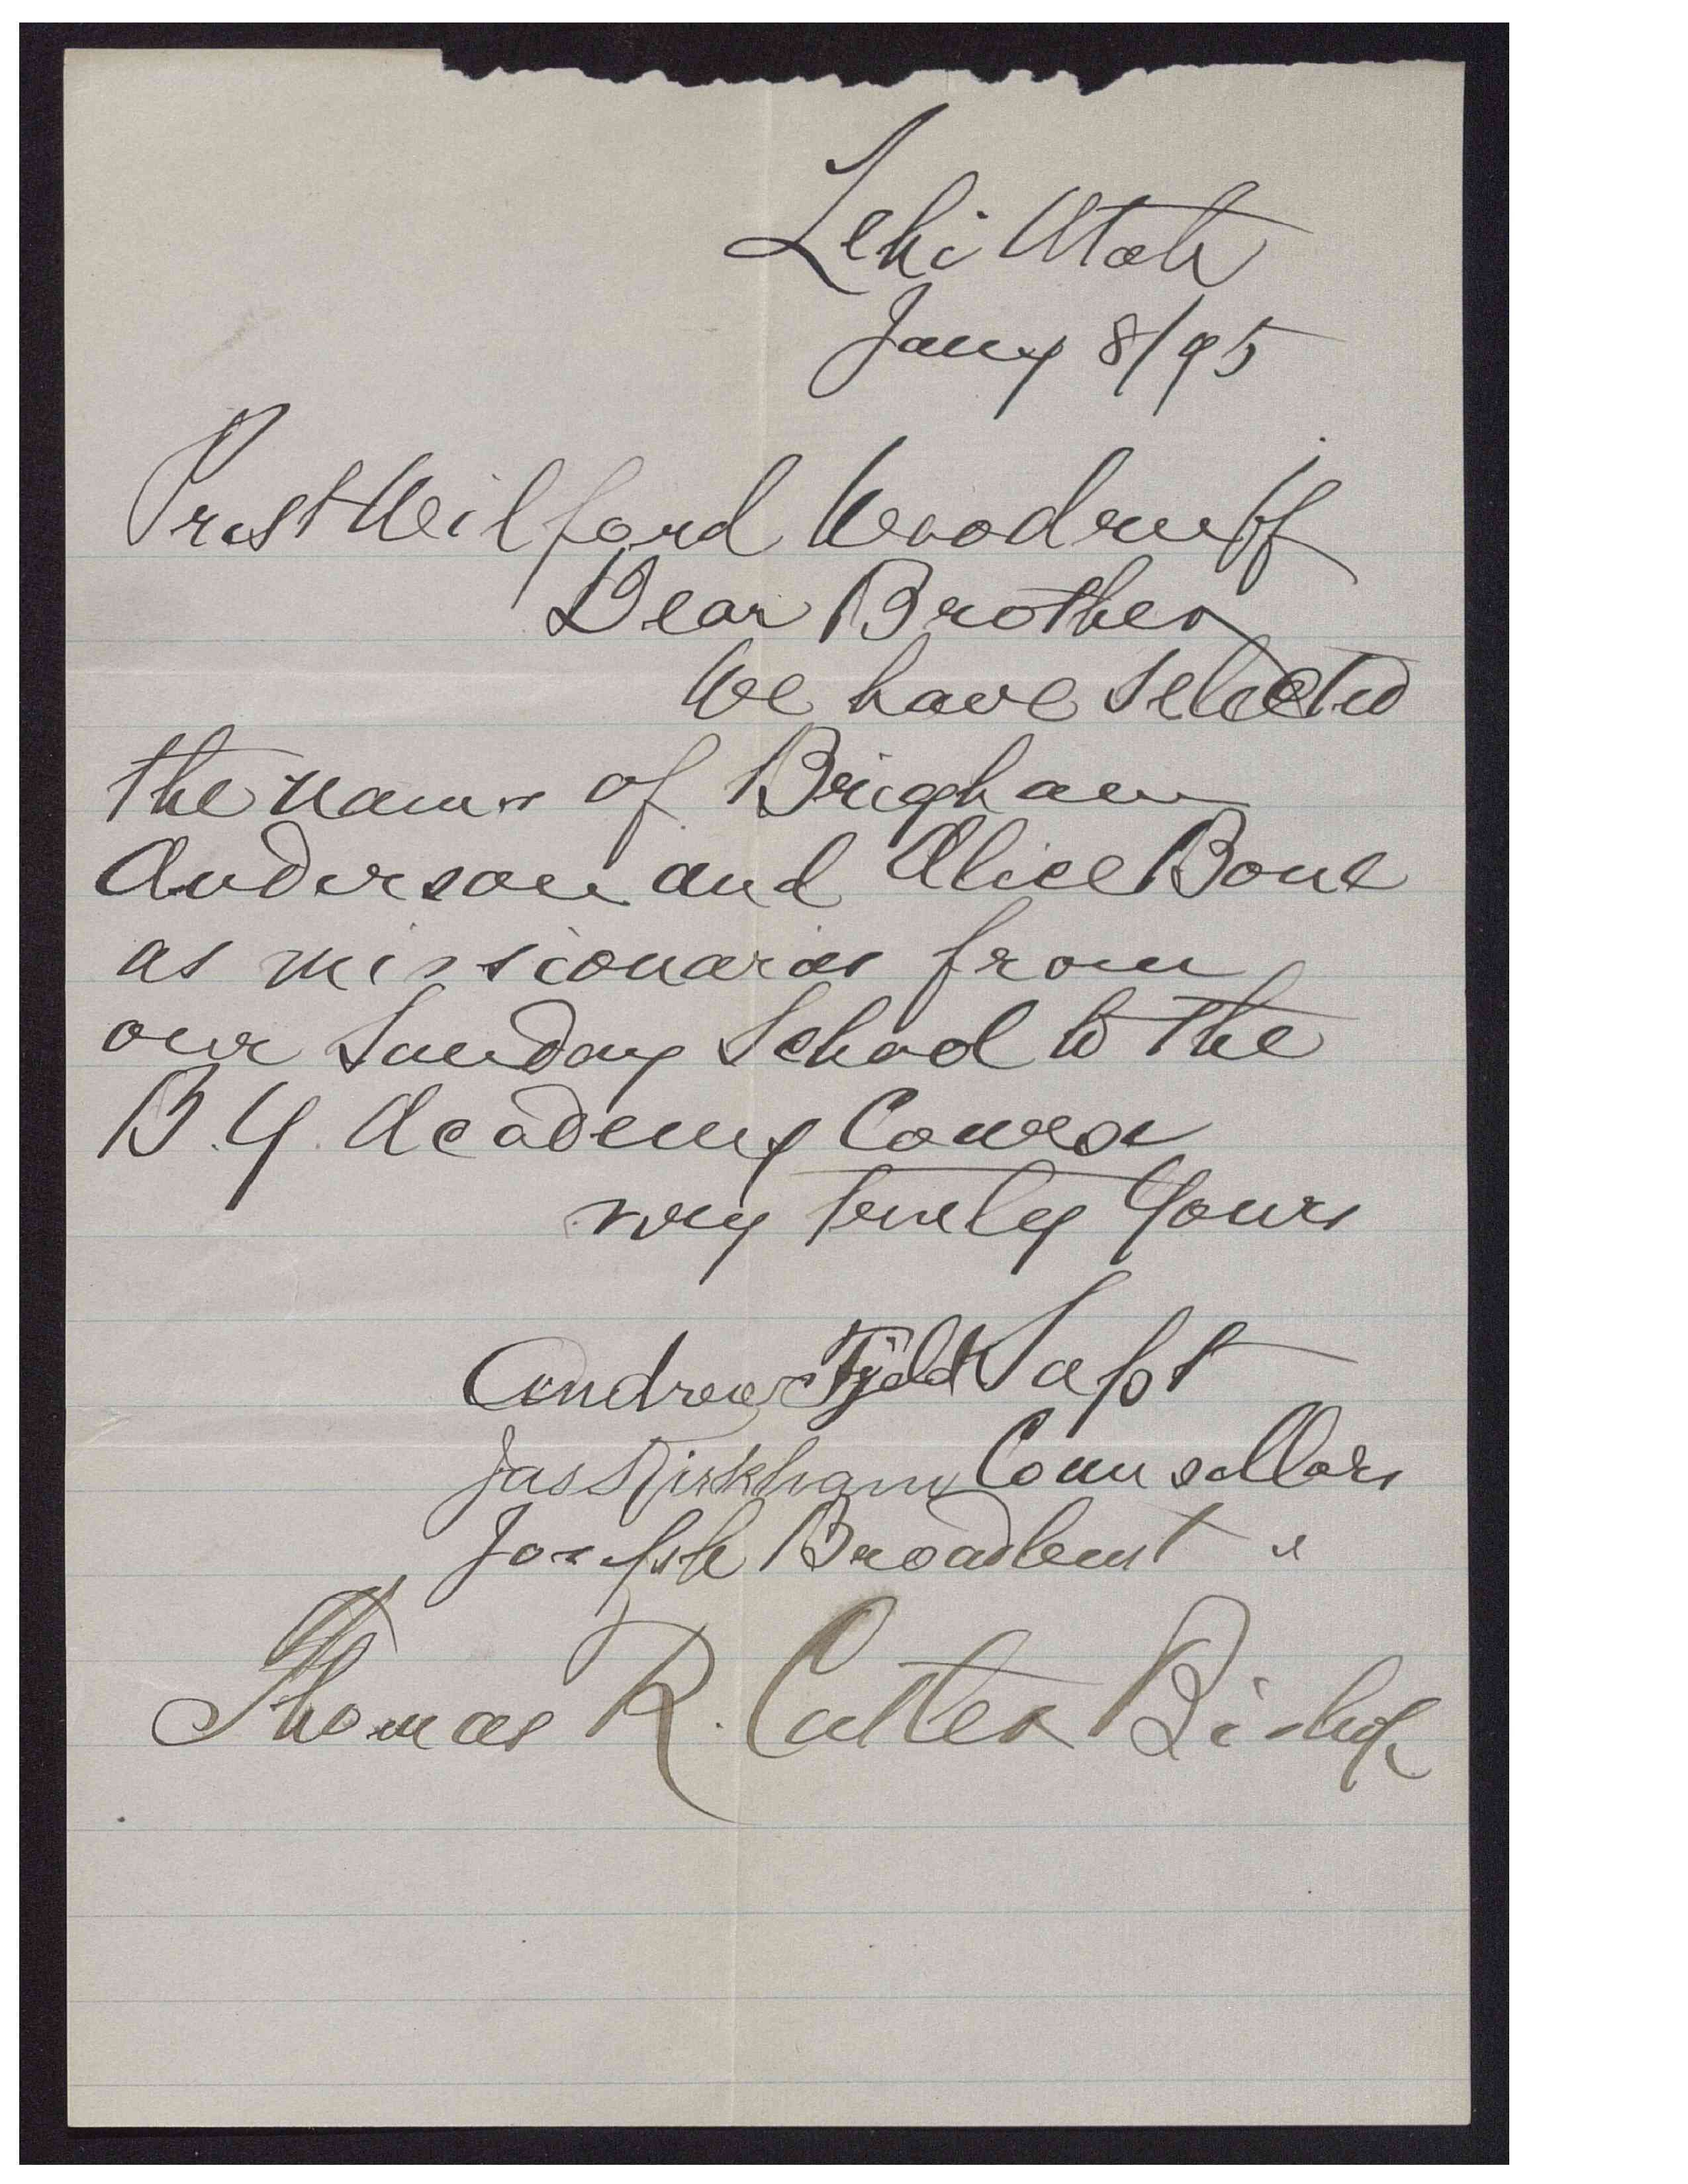 Lehi Utah
Jany 8/95
Prest Wilford Woodruff
Dear Brother
We have selected
the names of Brigham
Anderson and Alice Bone
as missionaries from
our Sunday School to the
B. Y. Academy Course
very truly Yours
Andrew Fjeld Supt
Jas Kirkham Counsellors
Joseph Broadbent "
Thomas R. Cutler Bishop